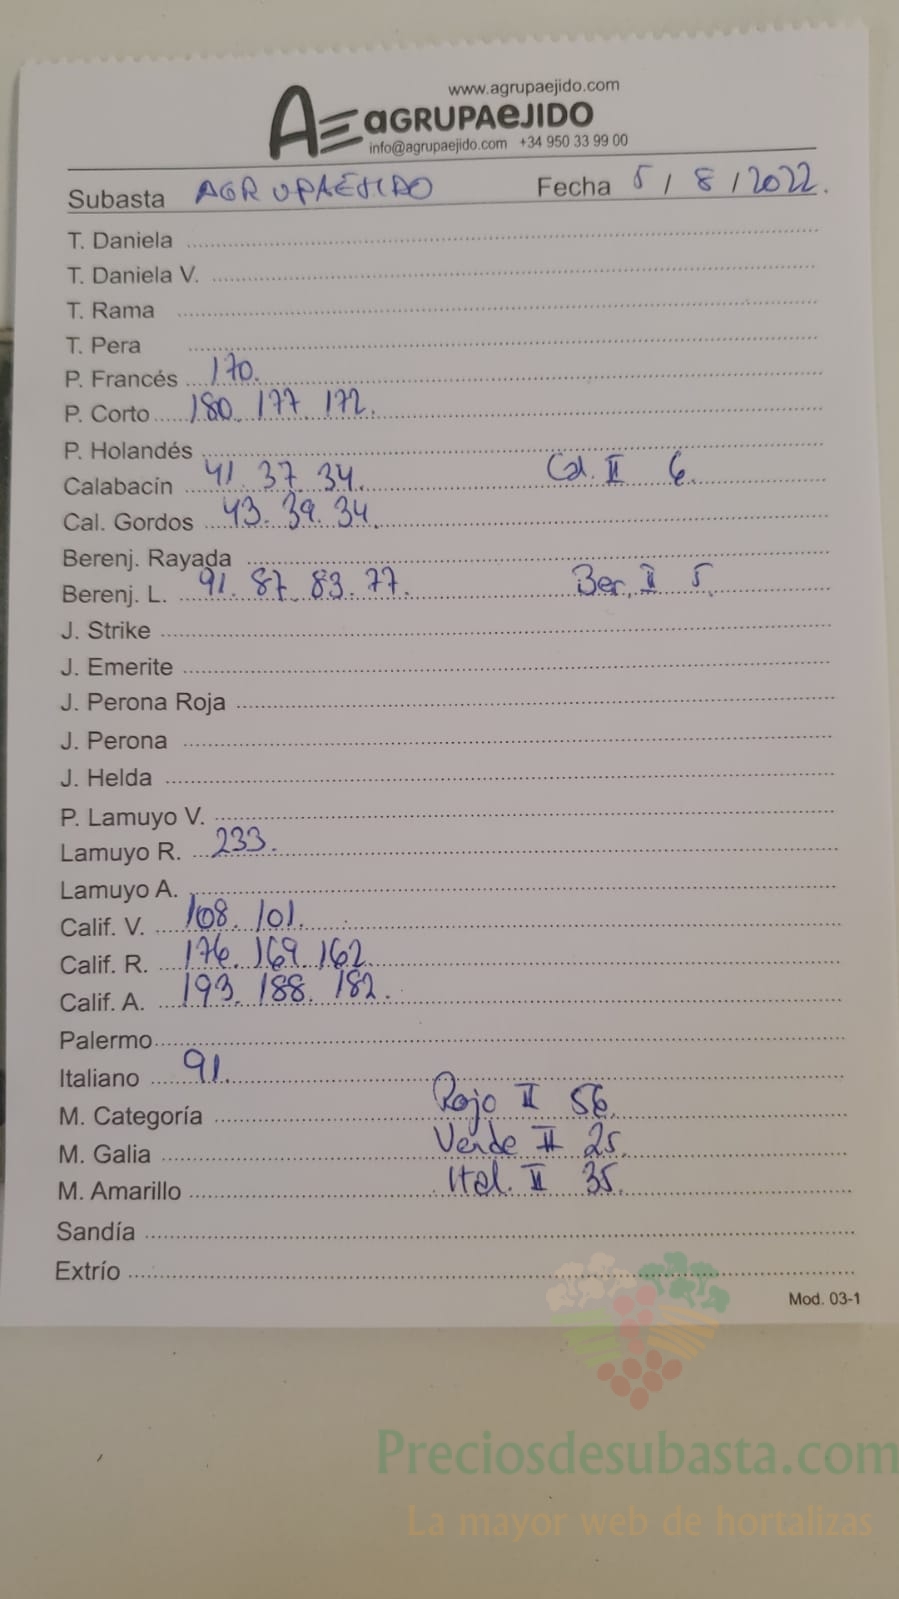 www.agrupaejido.com
AE aGRUPAeJIDO
info@agrupaejido.com +34 950 33 99 00
Subasta AGRUPAEJIDO Fecha 5 / 8 / 2022.
T. Daniela
T. Daniela V.
T. Rama
T. Pera
P. Francés 170.
P. Corto 180. 177. 172.
P. Holandés
Calabacín 41. 37. 34. Cal. II 6.
Cal. Gordos 43. 39. 34.
Berenj. Rayada
Berenj. L. 91. 87. 83. 77. Ber. II 5.
J. Strike
J. Emerite
J. Perona Roja
J. Perona
J. Helda
P. Lamuyo V.
Lamuyo R. 233.
Lamuyo A.
Calif. V. 108. 101.
Calif. R. 176. 169. 162.
Calif. A. 193. 188. 182.
Palermo
Italiano 91.
M. Categoría Rojo II 56.
M. Galia Verde II 25.
M. Amarillo Ital. II 35.
Sandía
Extrío
Mod. 03-1
Preciosdesubasta.com
La mayor web de hortalizas